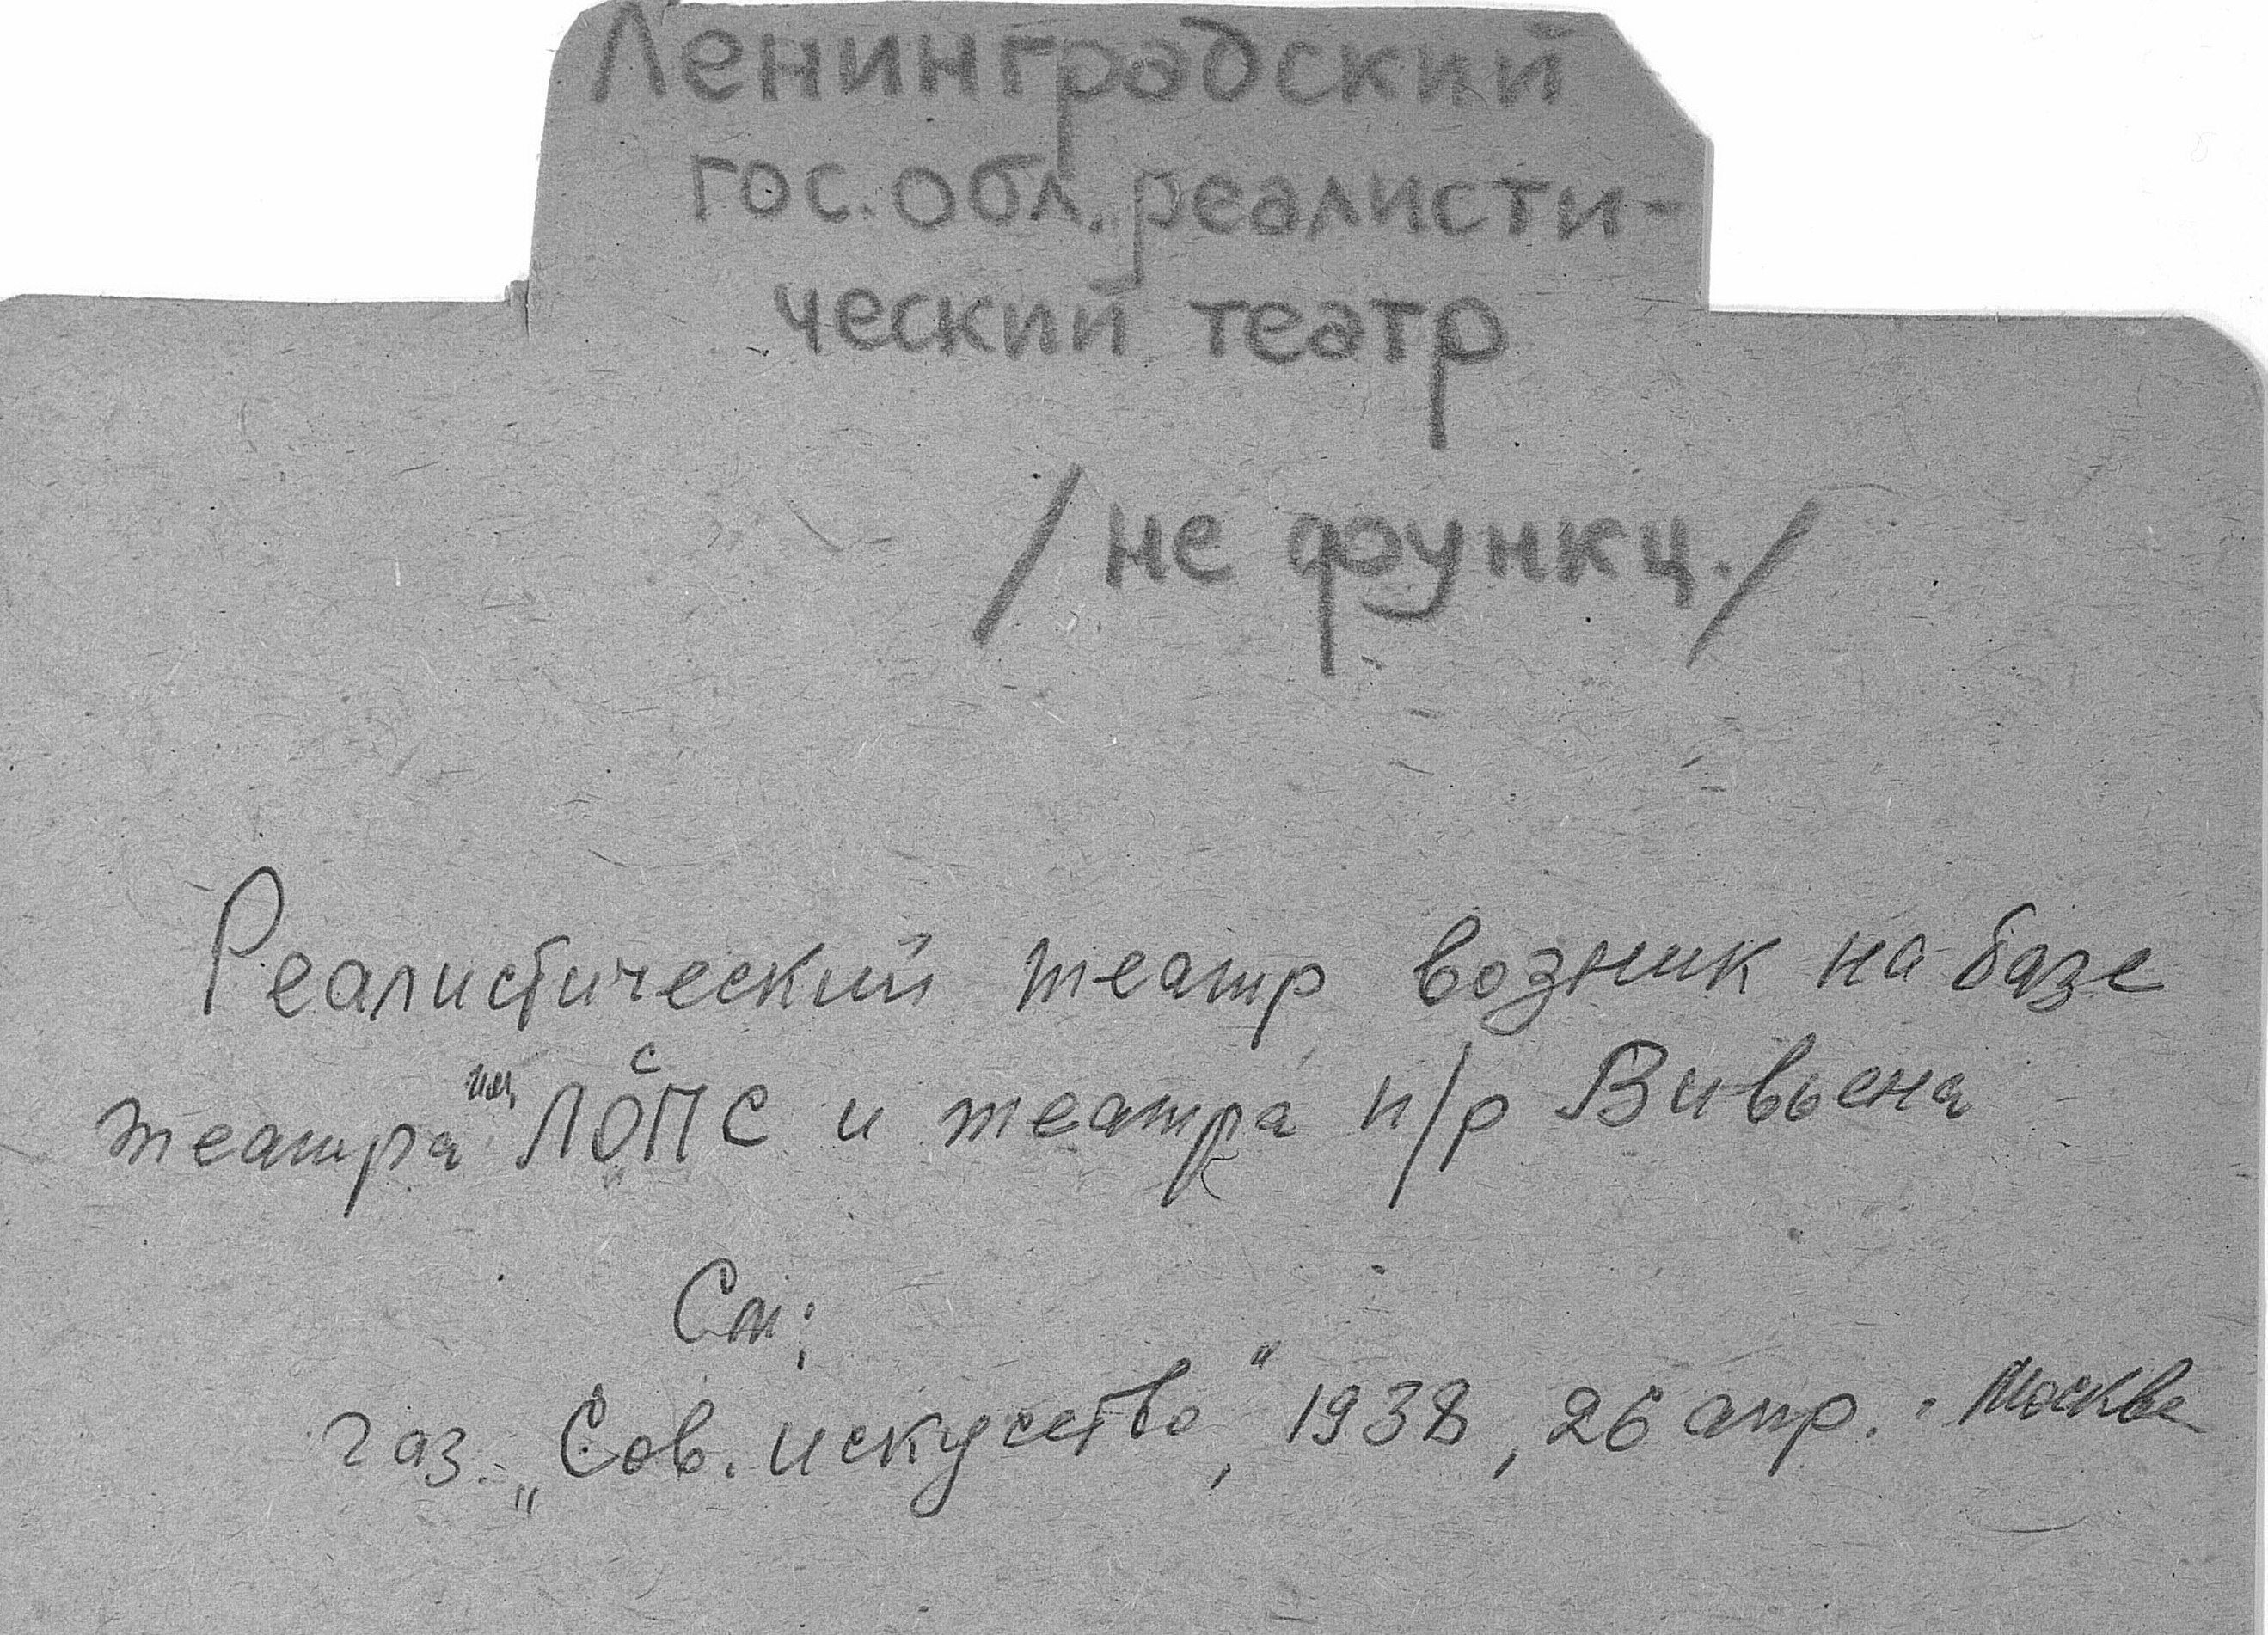 Ленинградский
гос. обл. реалисти-
ческий театр
/не функц./
Реалистический театр возник на базе
театра ЛОСПС и театра п/р Вивьена
См:
газ. „Сов. искусство", 1938, 26 апр. Москва